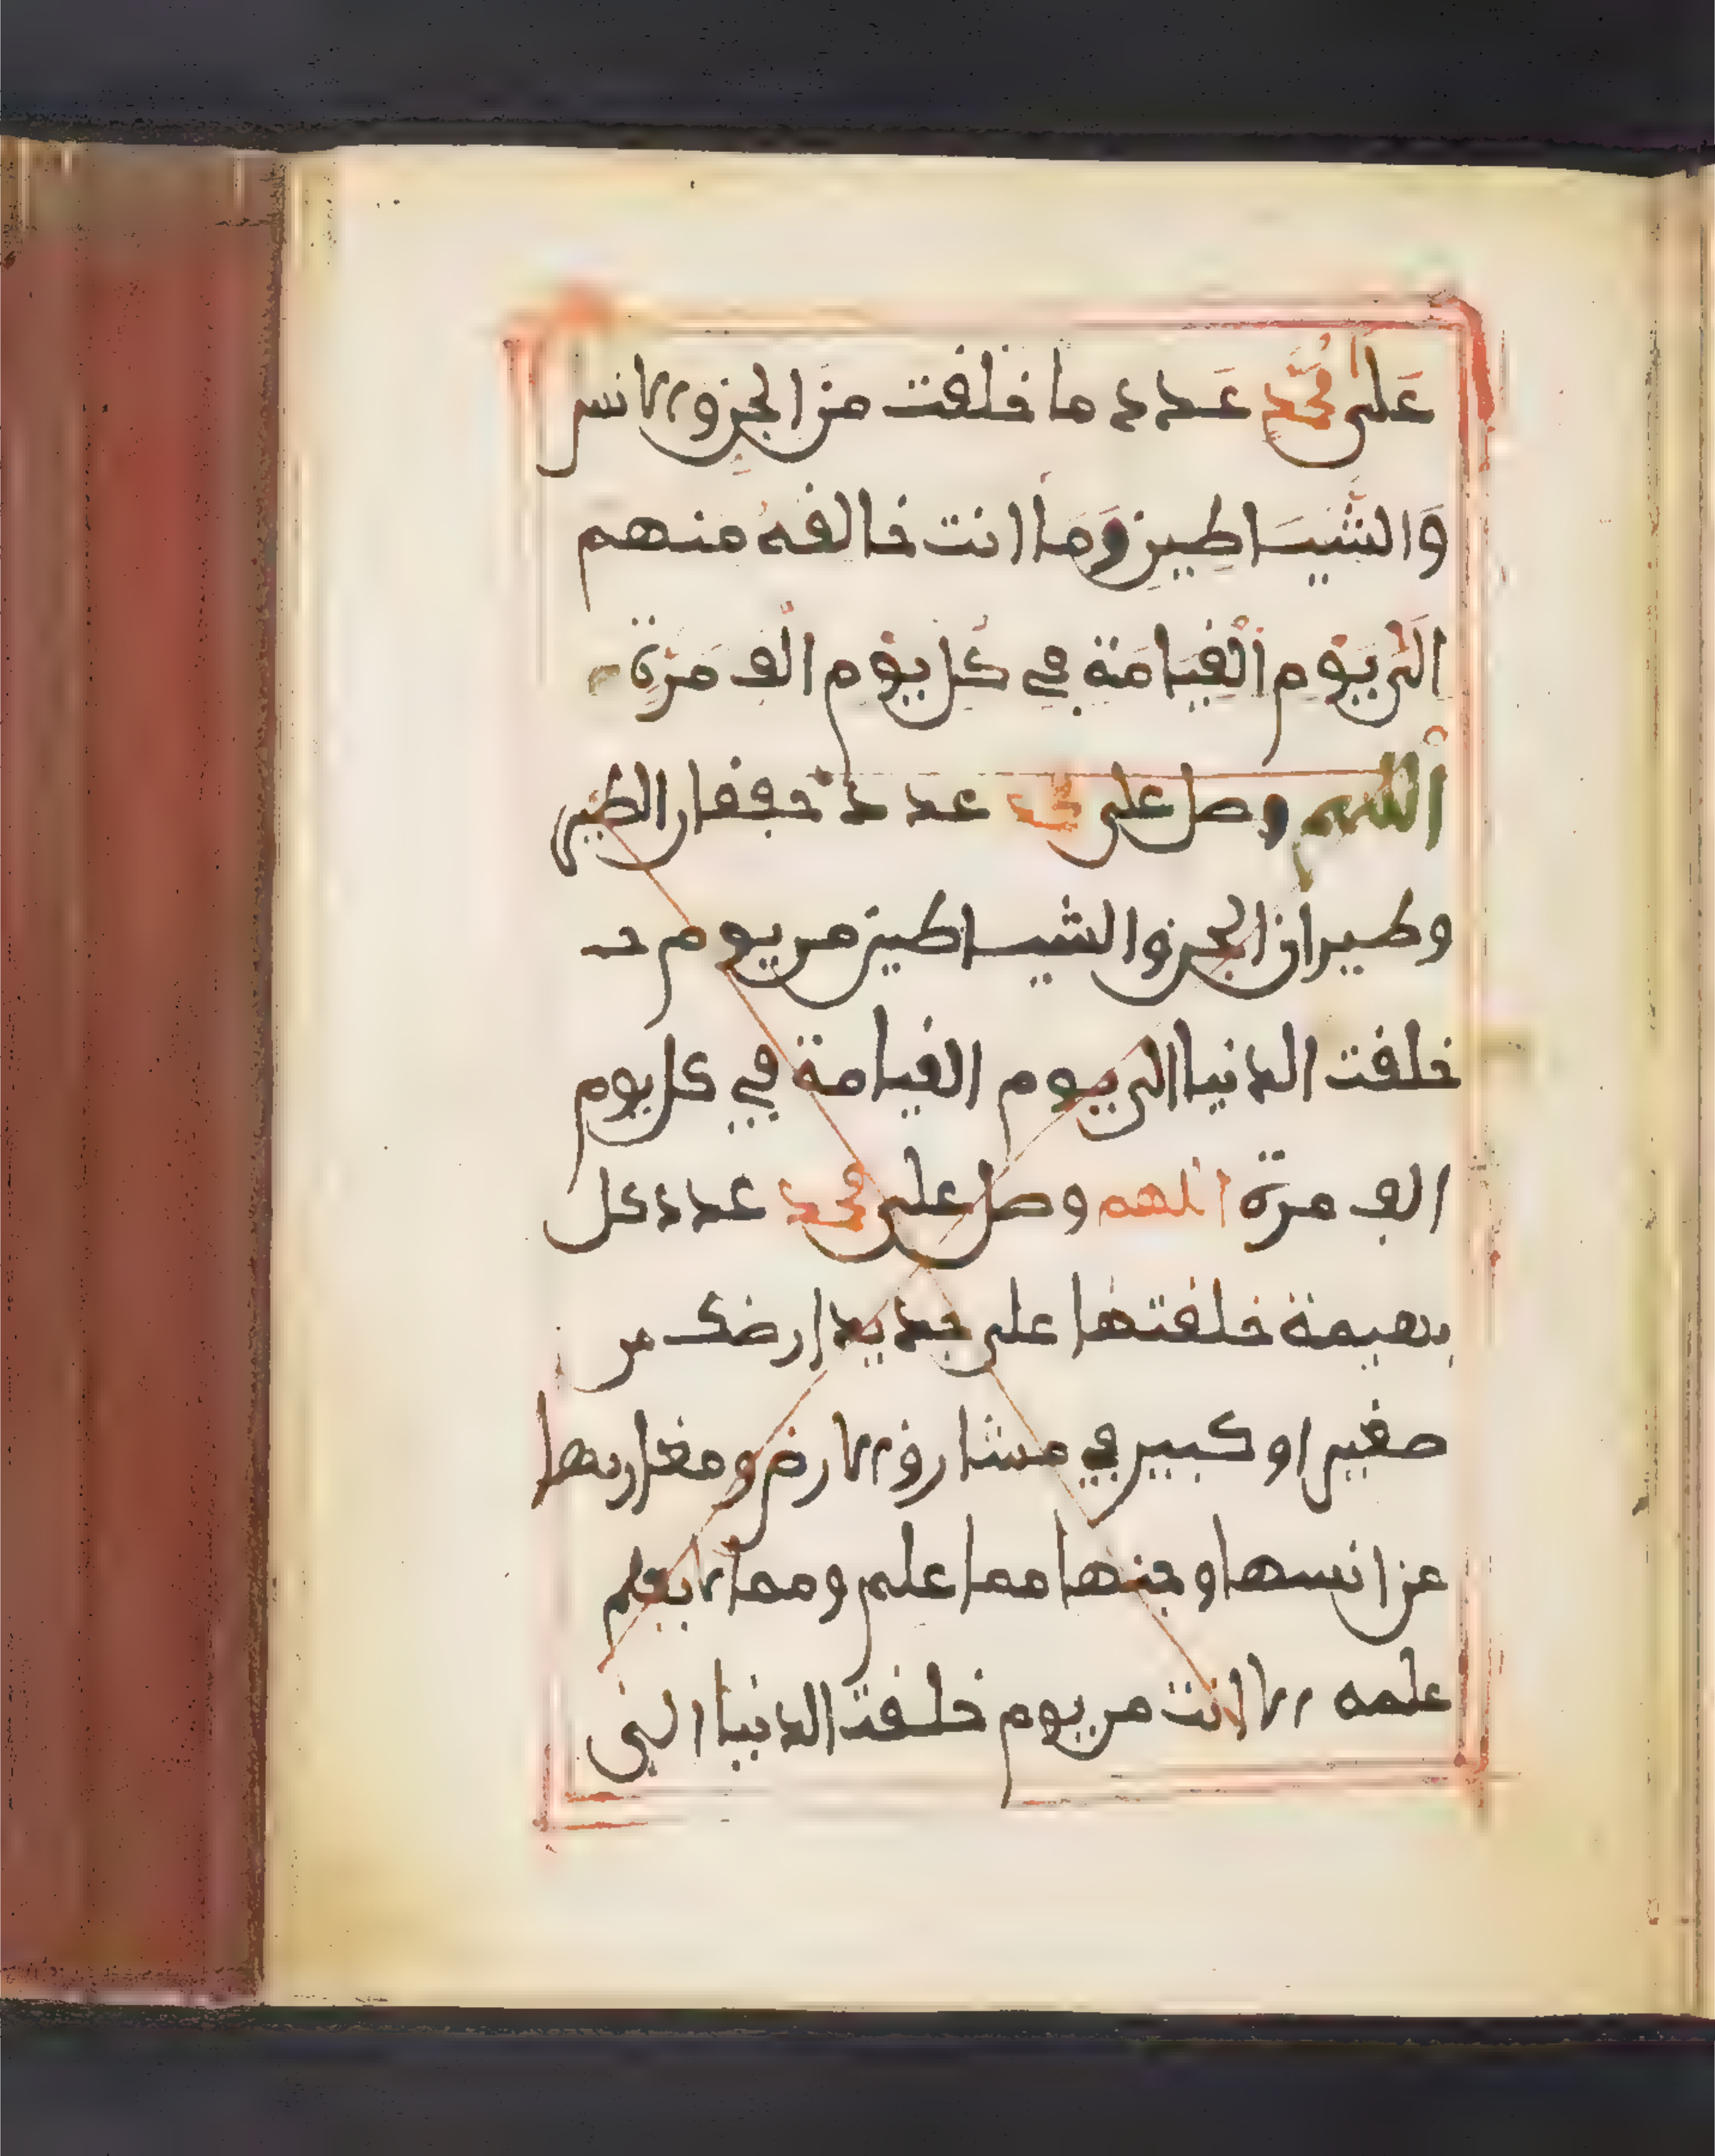 عَلى مُحَمَّد عَدد ما خلفت مِنَ الجِن والانس
وَالشَّيَاطِين وَمَا انت خالفهُ منهم
الَى يَوْم الْفِيَامَة في كُل يَوْم الْف مَرَّة
اللهم وصل على محمد عدد خففان الطير
وطيران الجن والشياطين من يوم
خلفت الدنيا الى يوم الفيامة في كل يوم
الف مرة اللهم وصل على محمد عدد كل
بهيمة خلفتها على جديد ارضك من
صغير او كبير في مشارق الارض ومغاربها
من انسها وجنها مما علم ومما لا يعلم
علمه الا انت من يوم خلفت الدنيا الى